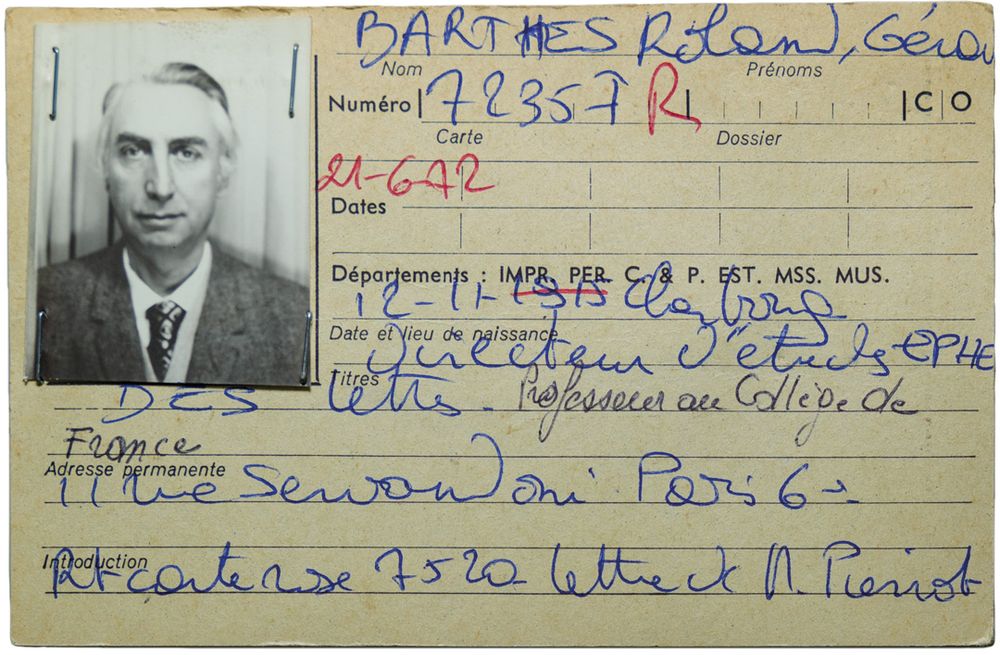 BARTHES Roland, Géra
Nom Prénoms
Numéro 72357 R C O
Carte Dossier
21-6-72
Dates
Départements : IMPR. PER. C. & P. EST. MSS. MUS.
12-11-1915 Cherbourg
Date et lieu de naissance
Directeur d'études EPHE
Titres
DES lettres. Professeur au Collège de
France
Adresse permanente
11 rue Servandoni Paris 6e
Introduction
carte rose 7520 lettre de M. Pierrot